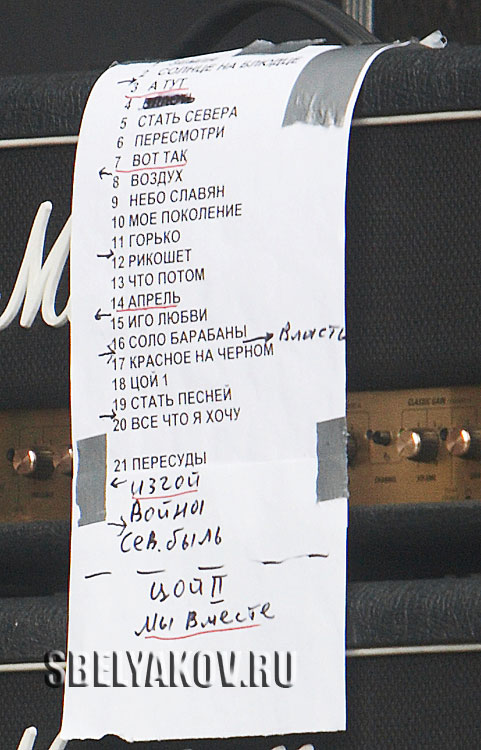 2 СОЛНЦЕ НА БЛЮДЦЕ
3 А ТУТ
4
5 СТАТЬ СЕВЕРА
6 ПЕРЕСМОТРИ
7 ВОТ ТАК
8 ВОЗДУХ
9 НЕБО СЛАВЯН
10 МОЕ ПОКОЛЕНИЕ
11 ГОРЬКО
12 РИКОШЕТ
13 ЧТО ПОТОМ
14 АПРЕЛЬ
15 ИГО ЛЮБВИ
16 СОЛО БАРАБАНЫ → Власть
17 КРАСНОЕ НА ЧЕРНОМ
18 ЦОЙ 1
19 СТАТЬ ПЕСНЕЙ
20 ВСЕ ЧТО Я ХОЧУ
21 ПЕРЕСУДЫ
ИЗГОЙ
Войны
Сев. быль
ЦОЙ II
Мы Вместе
SBELYAKOV.RU